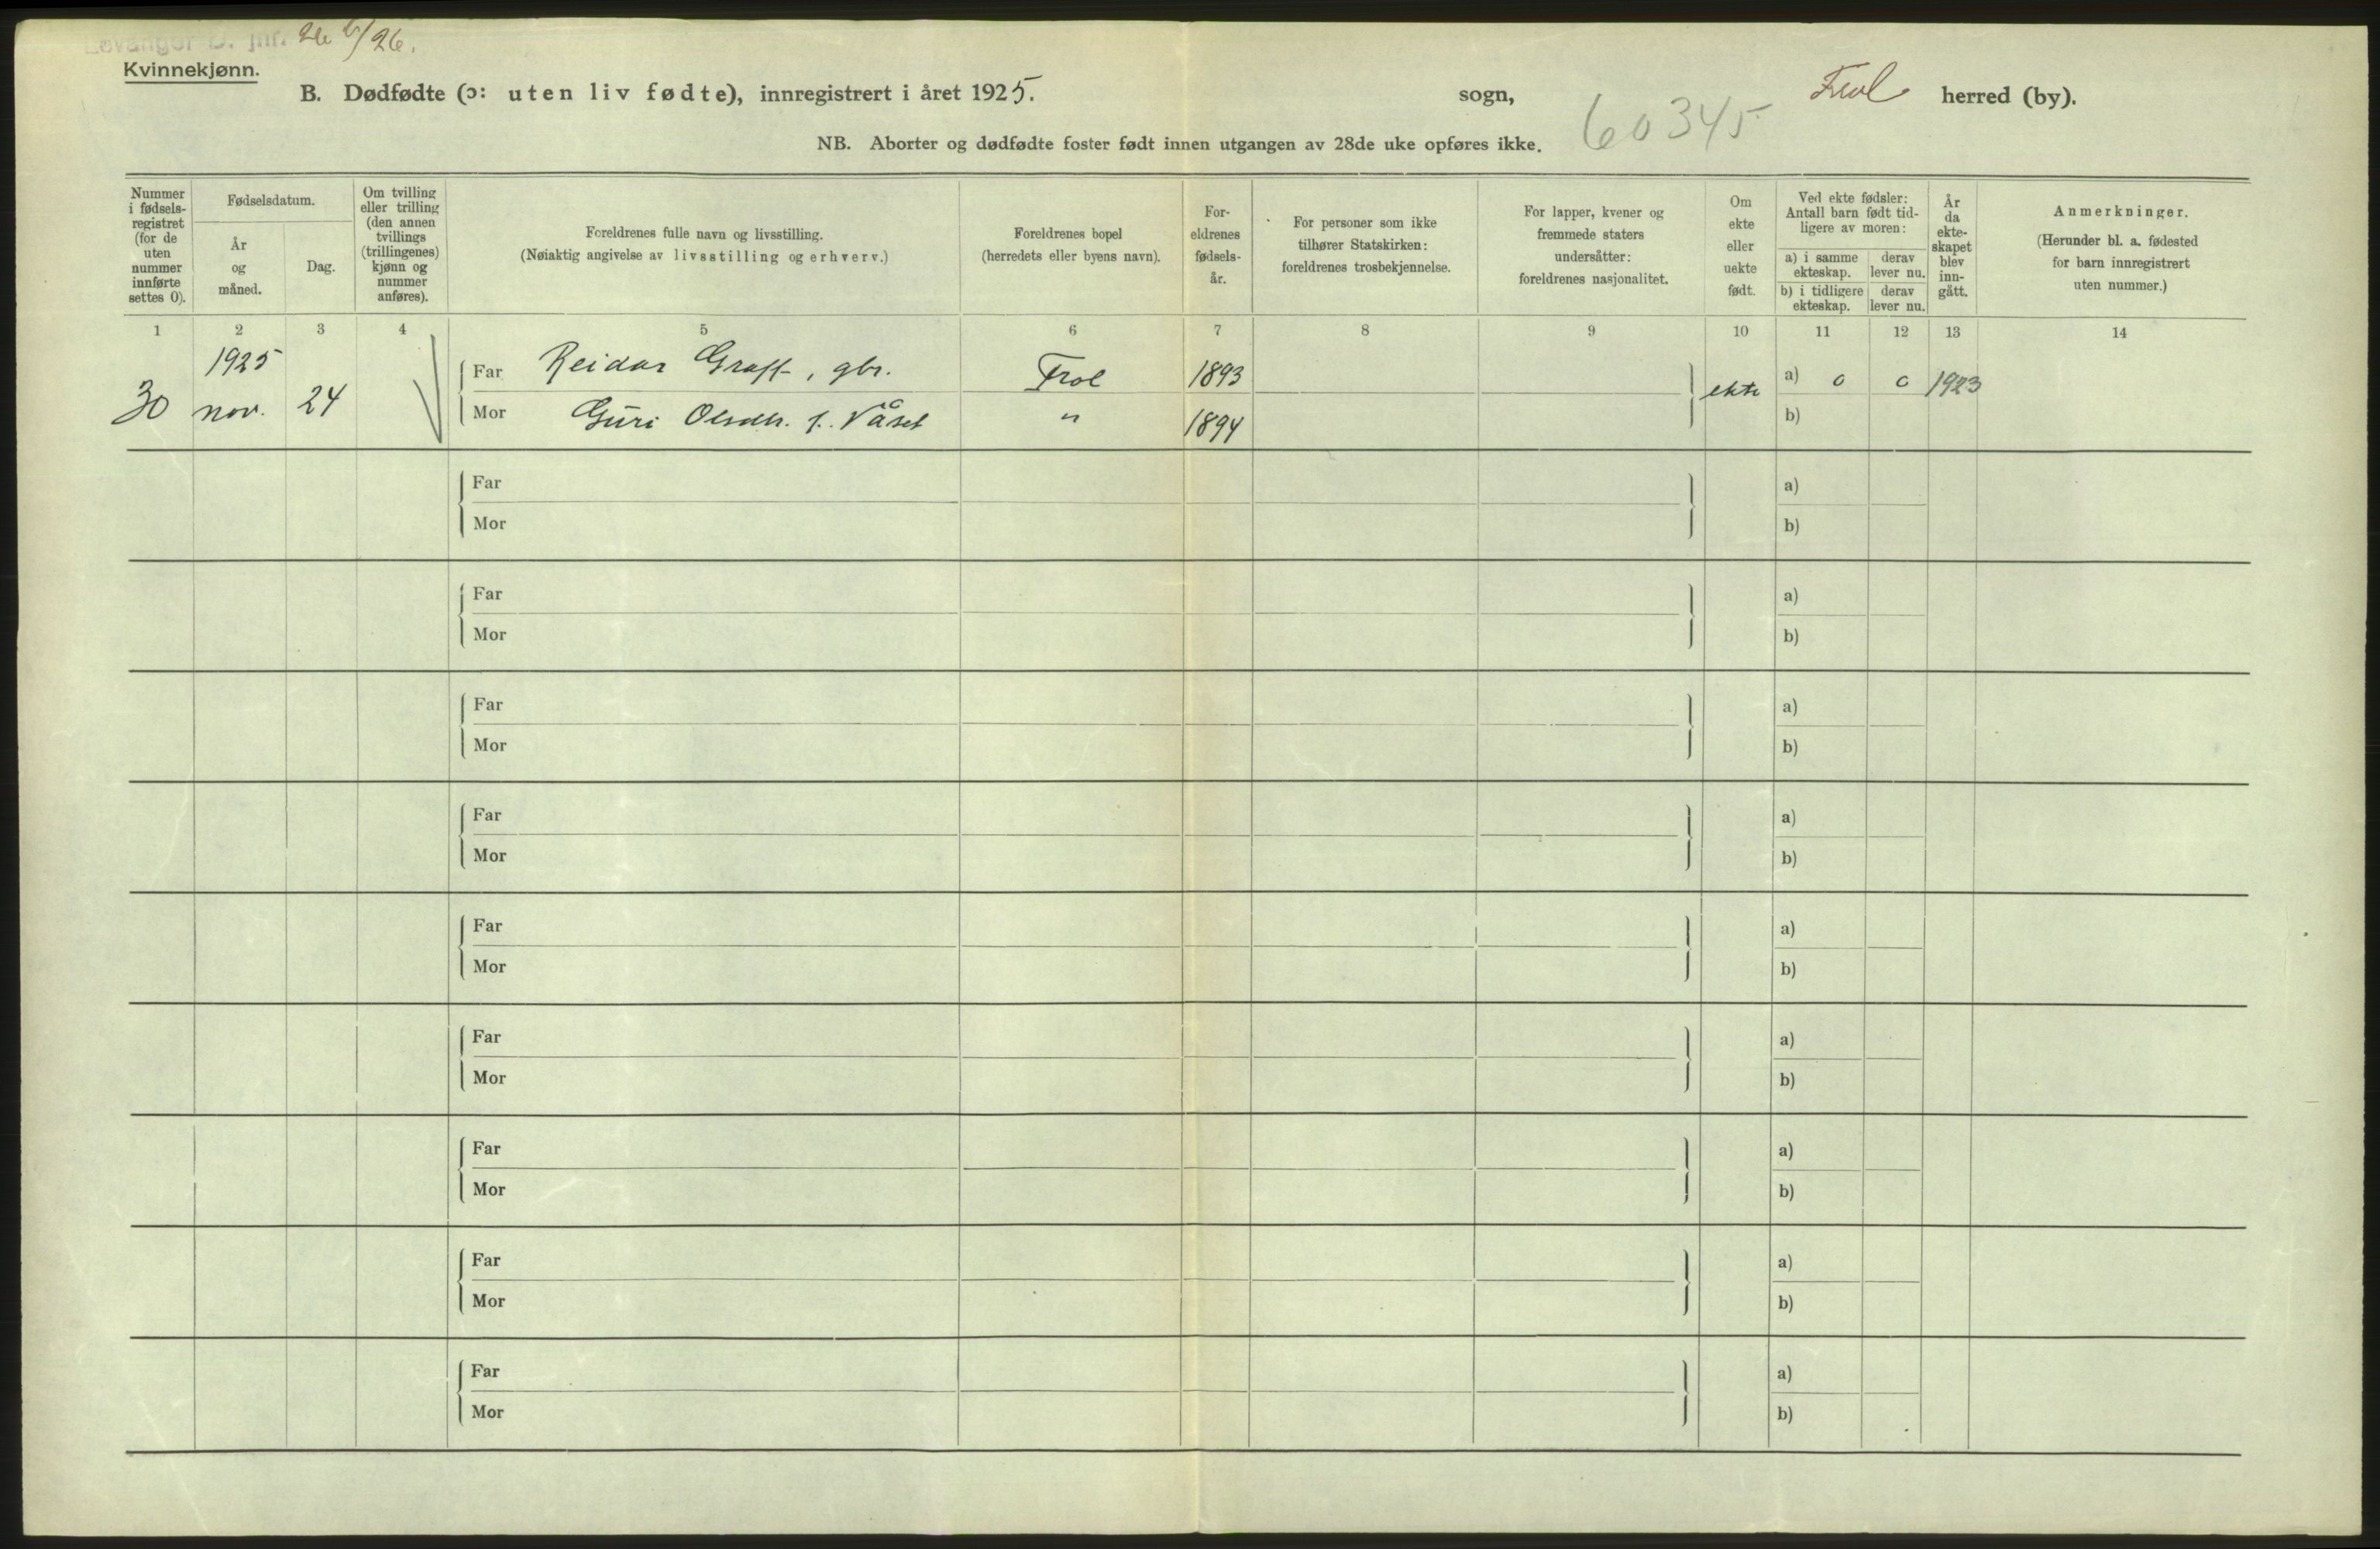 Levanger D. jnr. 26 b/26.
Kvinnekjønn.
B. Dødfødte (ɔ: uten liv fødte), innregistrert i året 1925. sogn, Frol herred (by).
60345
NB. Aborter og dødfødte foster født innen utgangen av 28de uke opføres ikke.
Nummer i fødsels-registret (for de uten nummer innførte settes 0).
Fødselsdatum.
År og måned.
Dag.
Om tvilling eller trilling (den annen tvillings (trillingenes) kjønn og nummer anføres).
Foreldrenes fulle navn og livsstilling.
(Nøiaktig angivelse av livsstilling og erhverv.)
Foreldrenes bopel
(herredets eller byens navn).
For-eldrenes fødsels-år.
For personer som ikke tilhører Statskirken: foreldrenes trosbekjennelse.
For lapper, kvener og fremmede staters undersåtter: foreldrenes nasjonalitet.
Om ekte eller uekte født.
Ved ekte fødsler: Antall barn født tid-ligere av moren:
a) i samme ekteskap. derav lever nu.
b) i tidligere ekteskap. derav lever nu.
År da ekte-skapet blev inn-gått.
Anmerkninger.
(Herunder bl. a. fødested for barn innregistrert uten nummer.)
1 2 3 4 5 6 7 8 9 10 11 12 13 14
1925
Far Reidar Graff, gbr. Frol 1893 a) 0 0 1923
30 nov. 24 ekte
Mor Guri Olsdtr. f. Våset " 1894 b)
Far a)
Mor b)
Far a)
Mor b)
Far a)
Mor b)
Far a)
Mor b)
Far a)
Mor b)
Far a)
Mor b)
Far a)
Mor b)
Far a)
Mor b)
Far a)
Mor b)